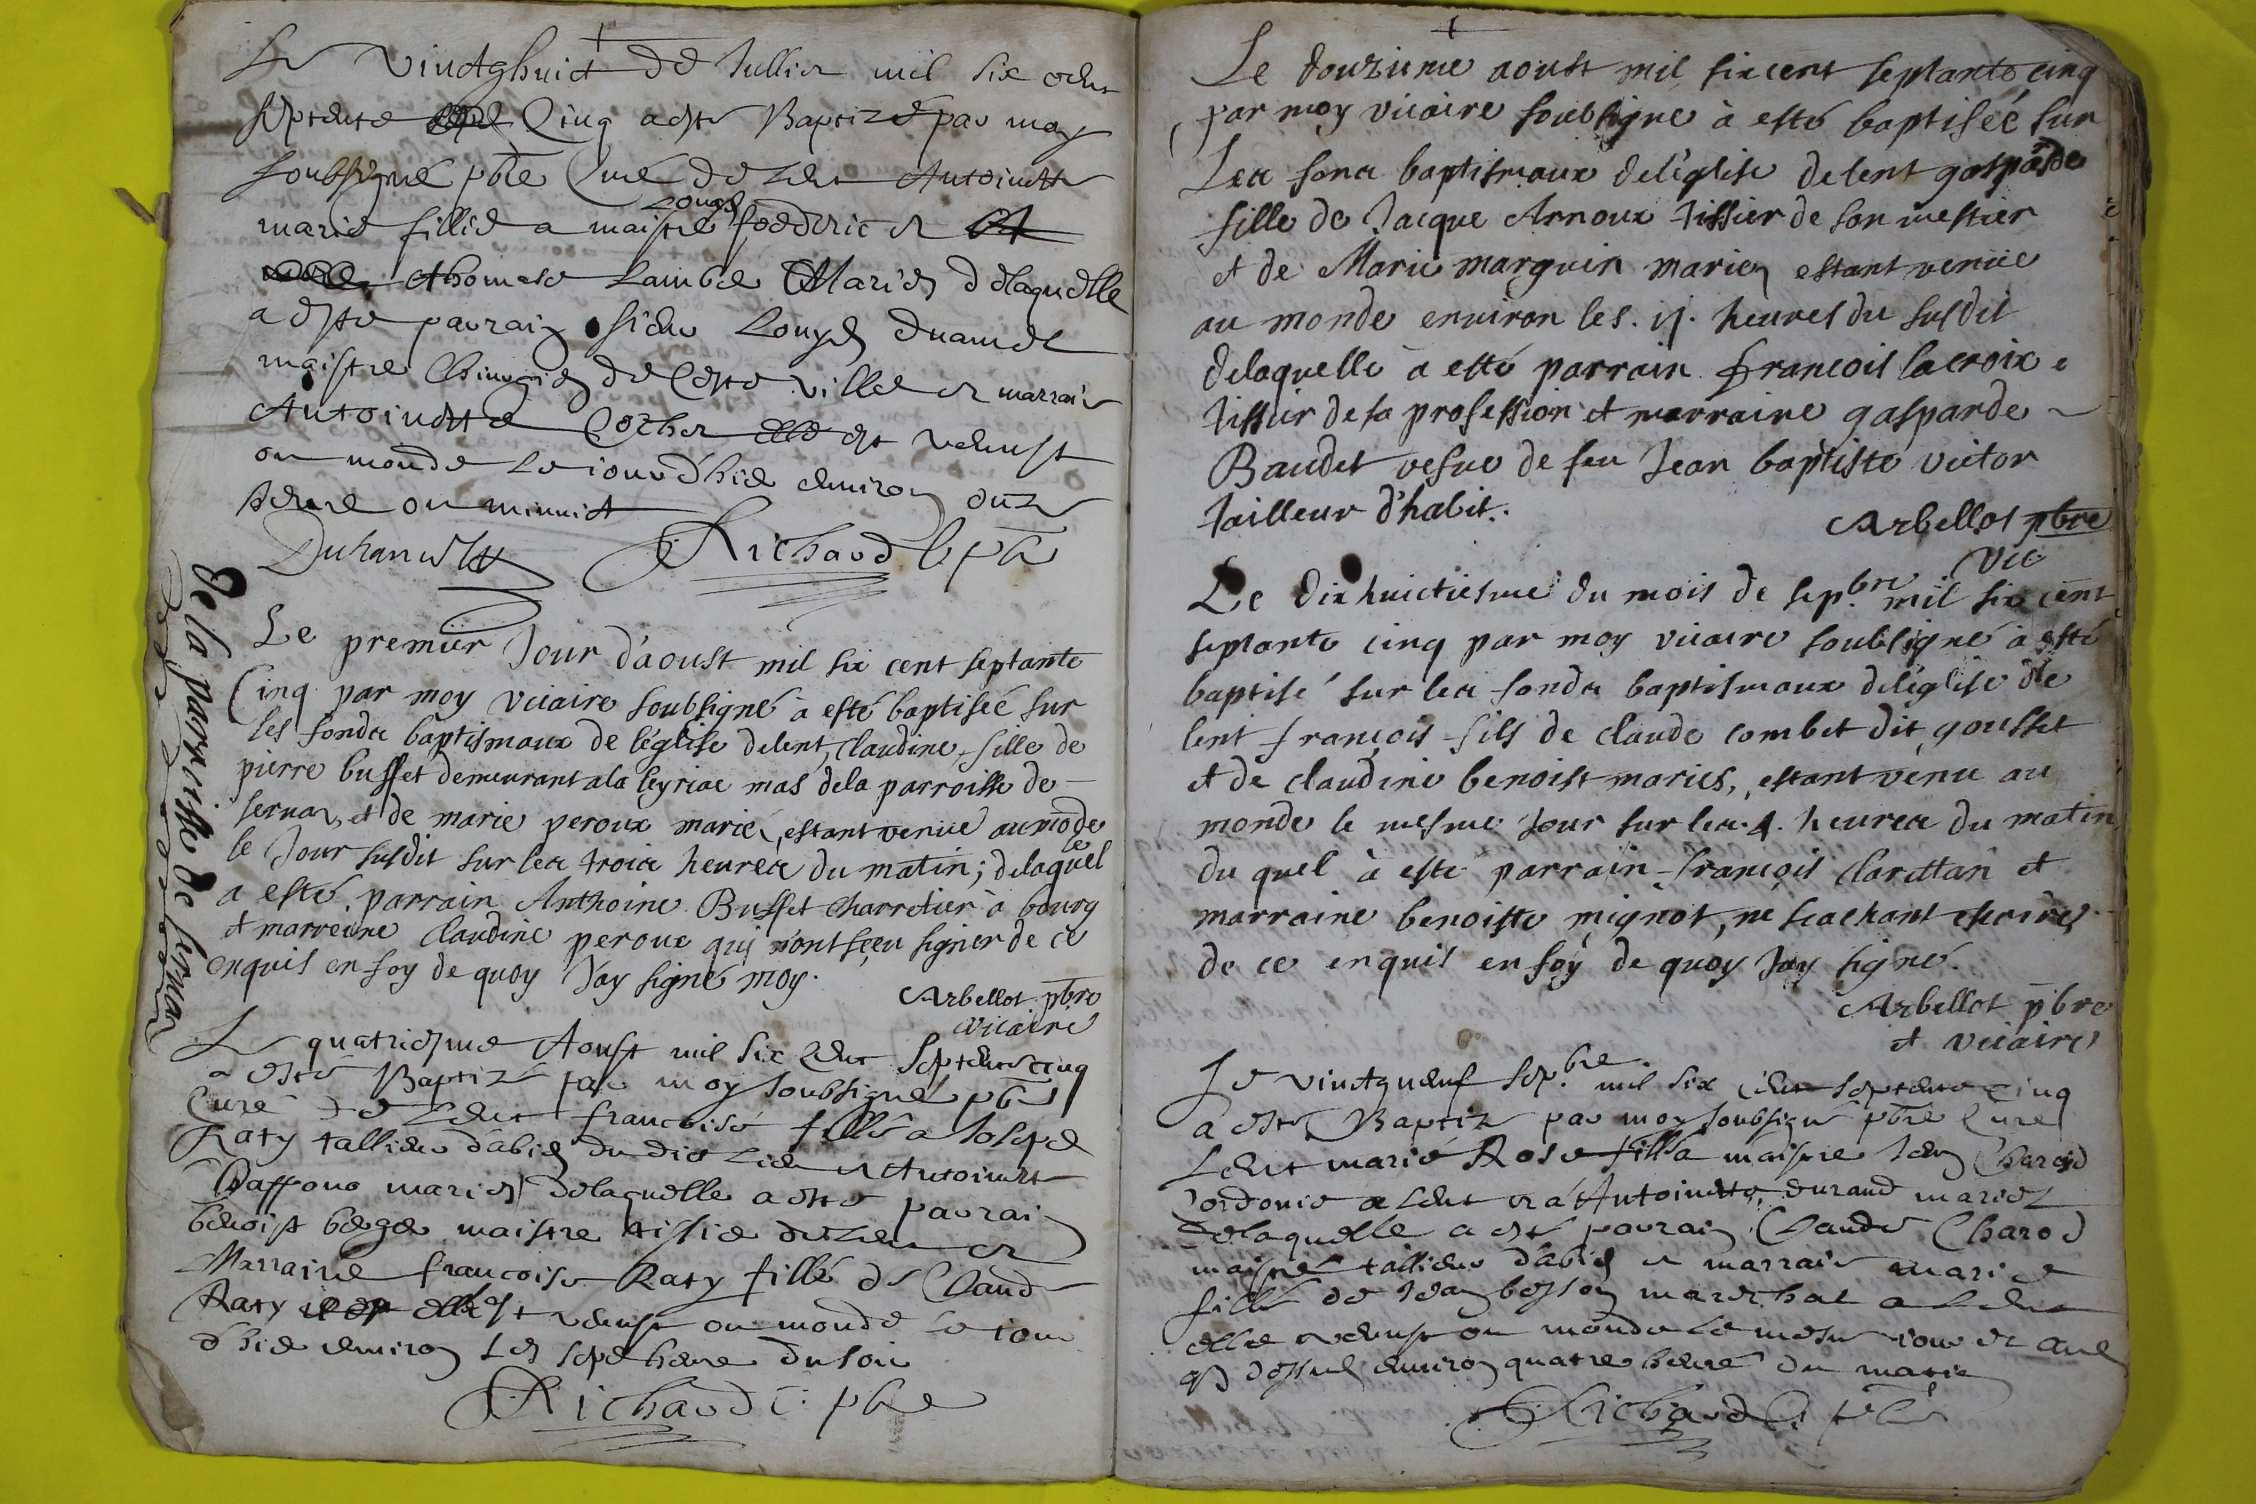 Le vinctghuict de Jullier mil six cent
septente Cinq a este Baptizé par moy
soubsigné pbre Curé de Lent Antoinette
marie fillie a maistre Louys foederic et
Thomase Lambel Mariés delaquelle
a este parrain sieur Louys duhamel
maistre Chirurgien de Ceste ville et marraine
Antoinette est venust
ou monde le iourd'hier environ onze
heure ou minuict
Richard C pbre
Le premier Jour d'aoust mil six cent septante
Cinq par moy vicaire soubsigné à esté baptiseé sur
les fonds baptismaux de l'église delent, claudine, fille de
pierre buffet demeurant ala leyriae mas dela parroisse de
servas, et de marie peroux mariés, estant venue au mõde
le Jour susdit sur les trois heures du matin; delaquelle
a esté parrain Anthoine Buffet charretier à bourg
et marreine claudine peroux qui n'ont sçeu signer de ce
enquis en foy de quoy J'ay signé moy.
Arbellot pbre
vicaire
De la parroisse de servas
Le quatriesme Aoust mil six cent septente cinq
a esté Baptizé par moy soubsigné pbre
Curé de Lent francoise fille a Joseph
Raty tallieur d'abis du dit Lieu et Antoinette
Chaffoux mariés delaquelle a este parrain
benoist maistre tissier de Lent et
Marraine francoise Raty fille de Claude
Raty elle est venust ou monde le iour
d'hier environ les sept heure du soir
Richard C: pbre
Le douziéme aoust mil six cent septante cinq
par moy vicaire soubsigne à esté baptiseé sur
Les fons baptismaux de l'église delent gasparde
fille de Jacque Arnoux tissier de son mestier
et de Marie marguin mariez estant venüe
au monde environ les . 11 . heures du susdit
delaquelle à esté parrain françois lacroix
tissier de sa profession et marraine gasparde
Baudet vesve de feu Jean baptiste victor
tailleur d'habit.
Arbellot pbre
vic
Le dix huictiesme du mois de sepbre mil six cent
septante cinq par moy vicaire soubsigné à esté
baptisé sur les fonds baptismaux de l'église de
lent françois fils de claude combet dit gousset
et de claudine benoist mariés, estant venu au
monde le mesme Jour sur les . 4 . heures du matin
du quel à esté parrain françois clarettan et
marraine benoiste mignot, ne scachant escrire
de ce enquis en foy de quoy Jay signé.
Arbellot pbre
et vicaire
Le vinctgneuf sepbre mil six cent septente cinq
a esté Baptizé par moy soubsigné pbre Curé
Lent marie Rose fille a maistre Jean Charod
cordonier a Lent et a Antoinette durand mariez
delaquelle a esté parrain Claude Charod
maistre tallieur d'abis et marraine marie
fille de Jean besson mareschal a Lent
elle venust ou monde le mesme iour et an
dessus environ quatre heure du matin
Richard C pbre